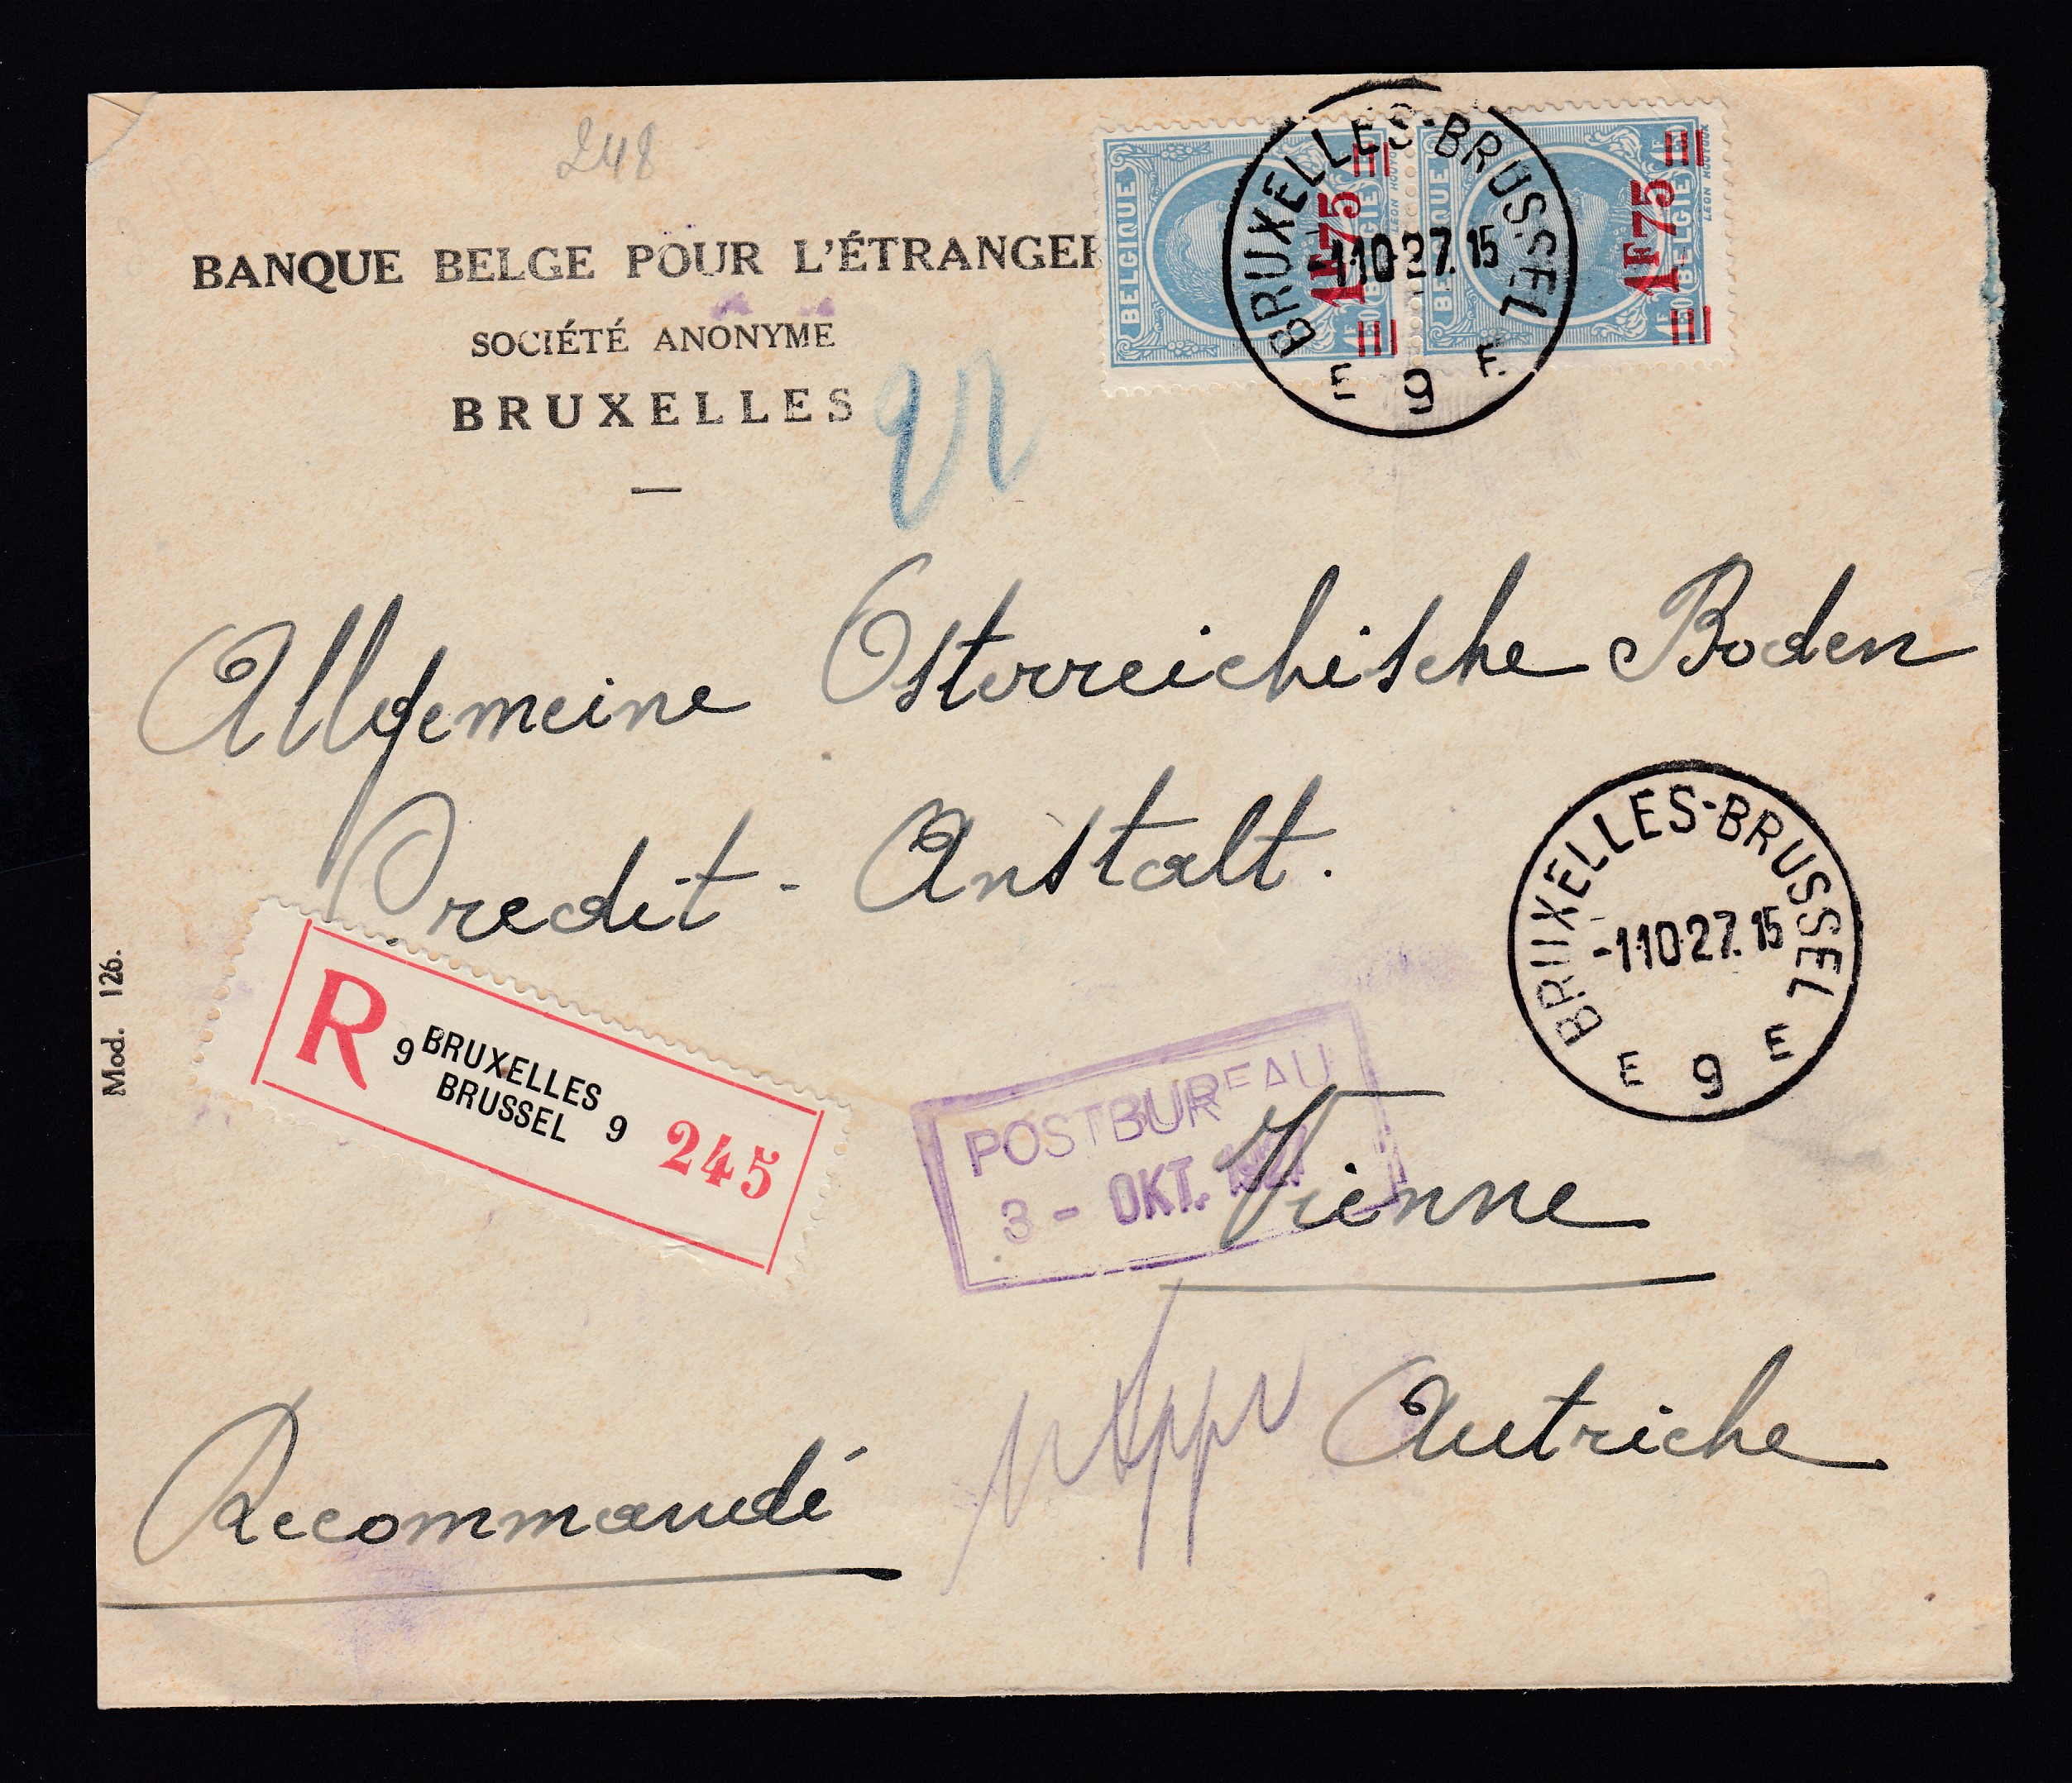 248
BANQUE BELGE POUR L'ÉTRANGER
SOCIÉTÉ ANONYME
BRUXELLES
BELGIQUE BELGIË
1F75
BELGIQUE BELGIË
1F75
BRUXELLES-BRUSSEL
-1 10 27. 15
E 9 E
Allgemeine Österreichische Boden
Credit - Anstalt.
BRUXELLES-BRUSSEL
-1 10 27. 15
E 9 E
Mod. 126.
R 9 BRUXELLES
BRUSSEL 9 245
POSTBUREAU
3 - OKT. 1927
Vienne
Autriche
Recommandé